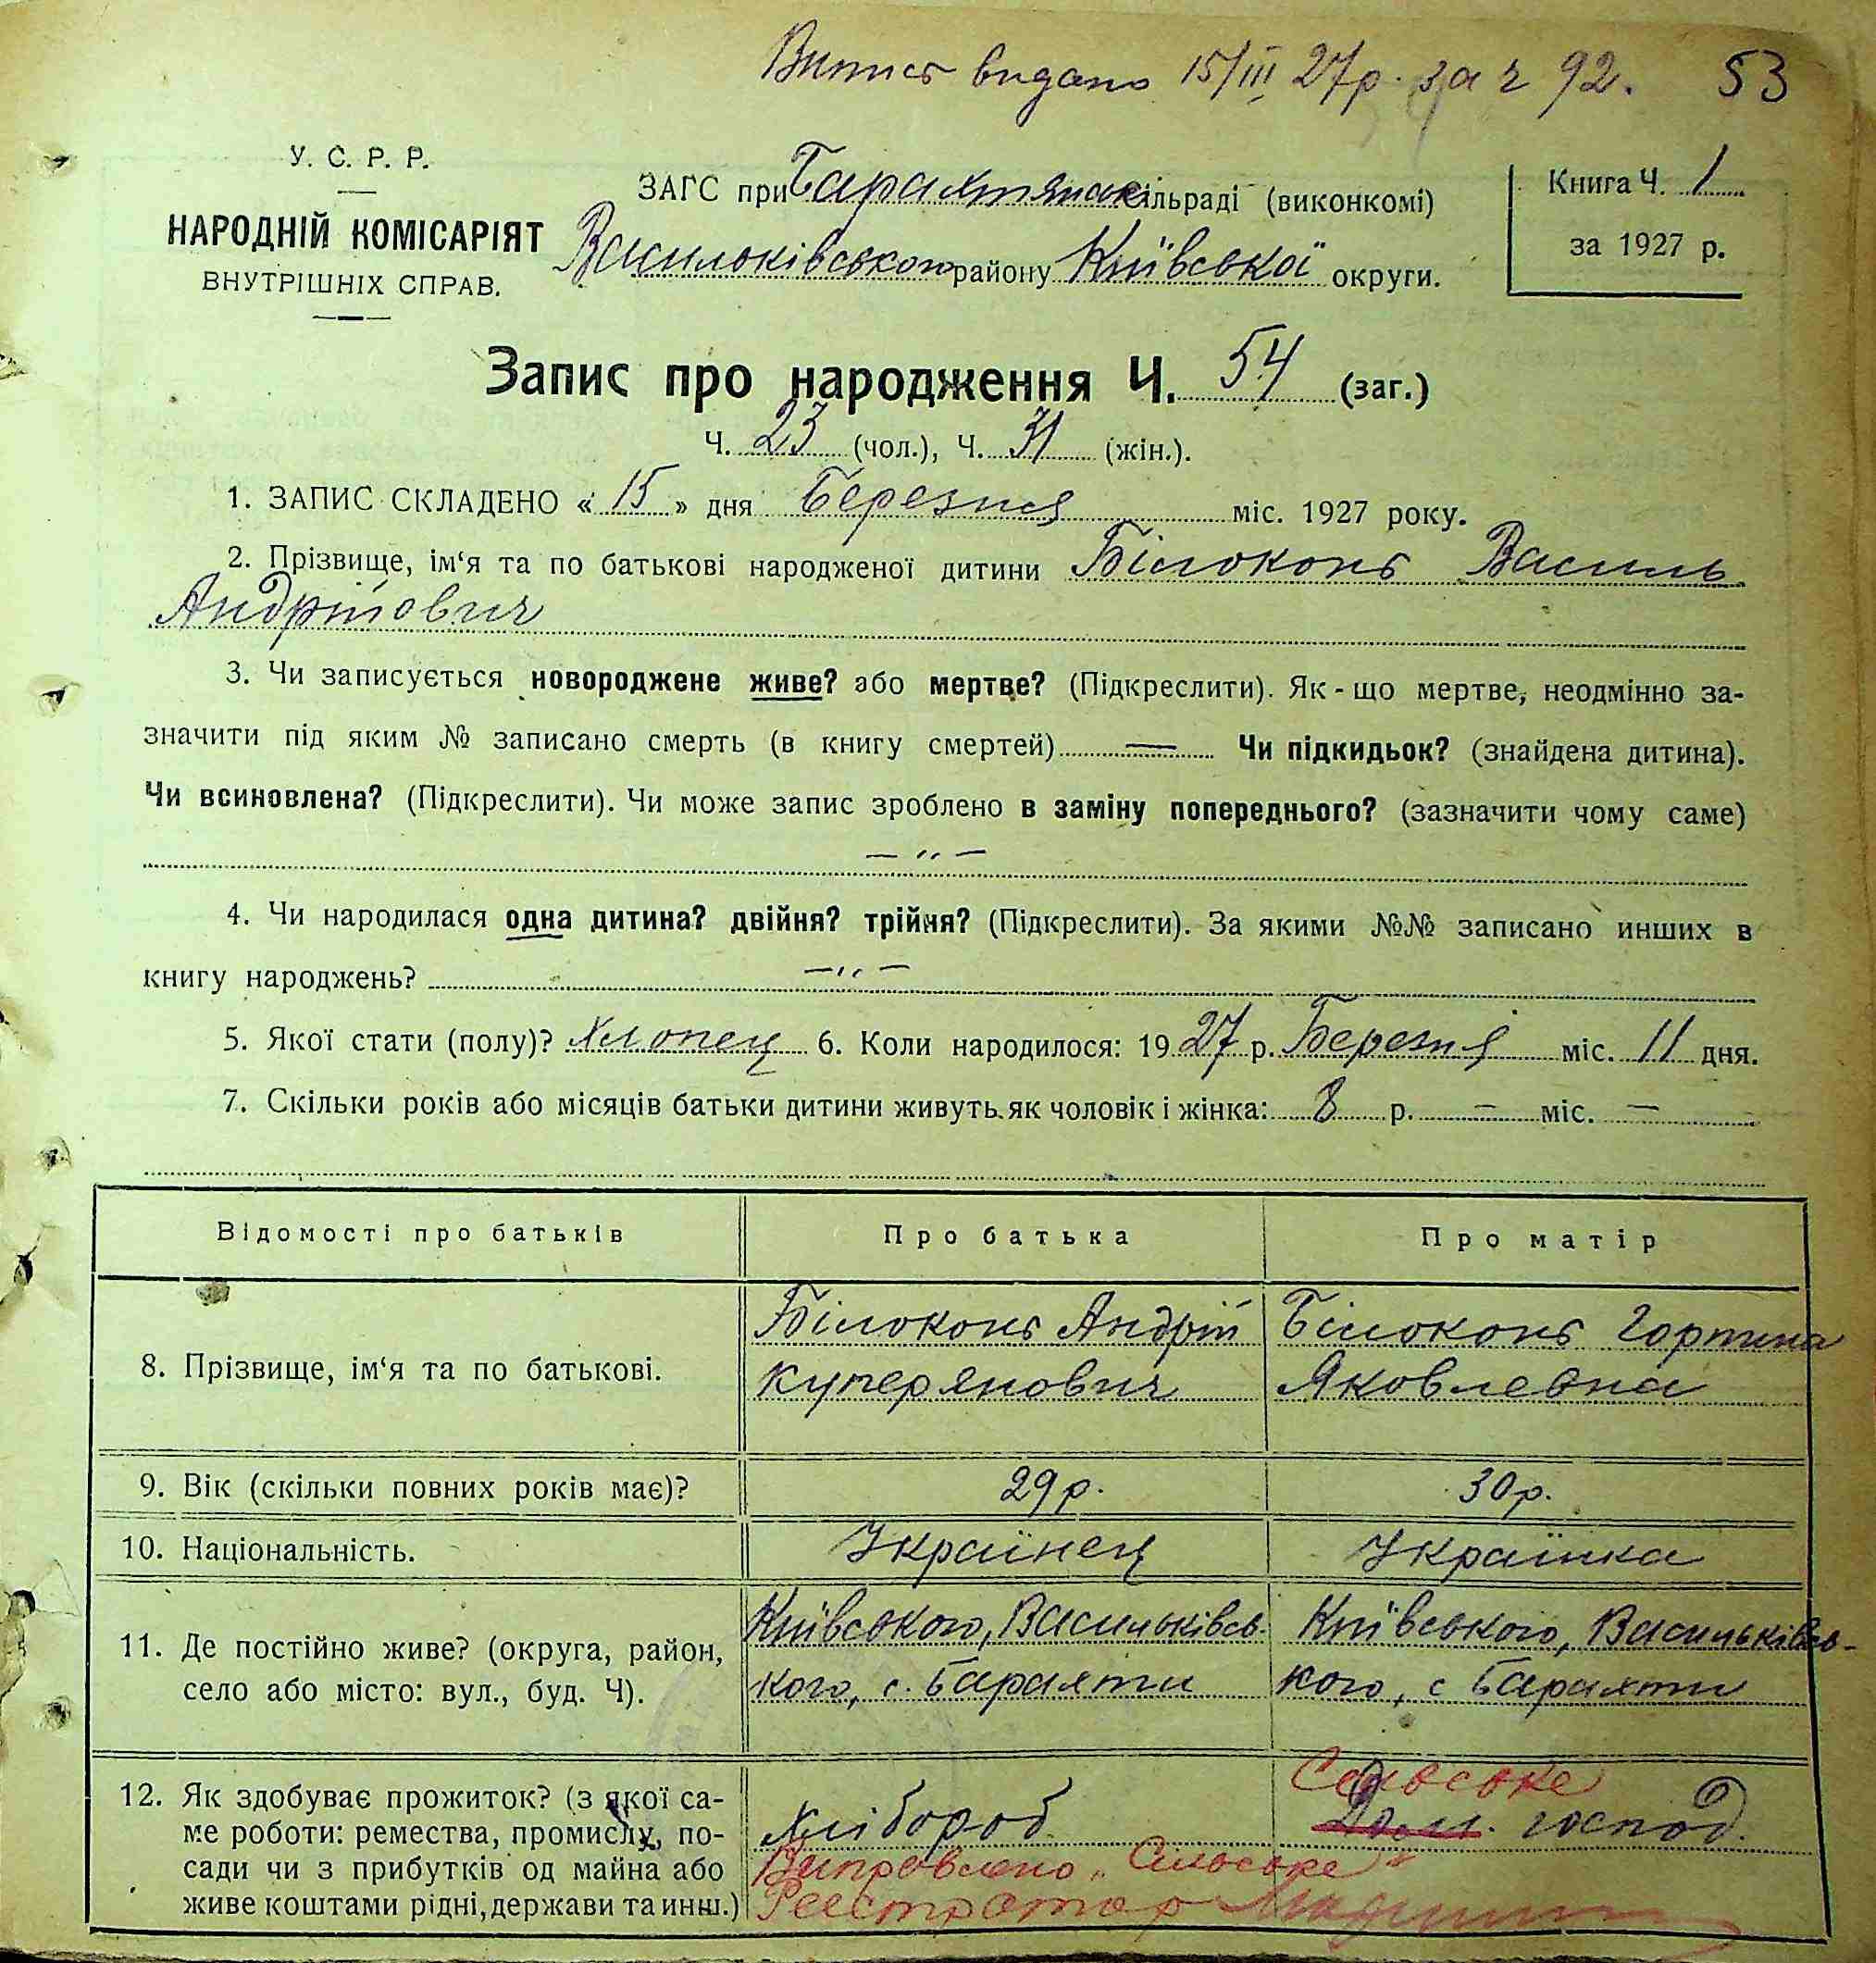 Випись видано 15/III 27р. за ч 92. 53
У. С. Р. Р.
НАРОДНІЙ КОМІСАРІЯТ
ВНУТРІШНІХ СПРАВ.
ЗАГС при Барахтянск сільраді (виконкомі)
Васильківського району Київської округи.
Книга Ч. 1
за 1927 р.
Запис про народження Ч. 54 (заг.)
Ч. 23 (чол.), Ч. 31 (жін.).
1. ЗАПИС СКЛАДЕНО « 15 » дня Березня міс. 1927 року.
2. Прізвище, ім‘я та по батькові народженої дитини Білоконь Василь
Андрійович
3. Чи записується новороджене живе? або мертве? (Підкреслити). Як - що мертве, неодмінно за-
значити під яким № записано смерть (в книгу смертей) — Чи підкидьок? (знайдена дитина).
Чи всиновлена? (Підкреслити). Чи може запис зроблено в заміну попереднього? (зазначити чому саме)
— „ —
4. Чи народилася одна дитина? двійня? трійня? (Підкреслити). За якими №№ записано инших в
книгу народжень? — „ —
5. Якої стати (полу)? Хлопец 6. Коли народилося: 1927 р. Березня міс. 11 дня.
7. Скільки років або місяців батьки дитини живуть як чоловік і жінка: 8 р. — міс. —
Відомості про батьків Про батька Про матір
8. Прізвище, ім‘я та по батькові.
Білоконь Андрій
Куперянович
Білоконь Гортина
Яковлевна
9. Вік (скільки повних років має)? 29 р. 30 р.
10. Національність. Українец Українка
11. Де постійно живе? (округа, район,
село або місто: вул., буд. Ч).
Київського, Васильківсь-
кого, с. Барахти
Київського, Васильківсь-
кого, с Барахти
12. Як здобуває прожиток? (з якої са-
ме роботи: ремества, промислу, по-
сади чи з прибутків од майна або
живе коштами рідні, держави та инш.)
Хлібороб
Сельське
Дом. господ.
Виправлено „Сільське“
Реєстратор